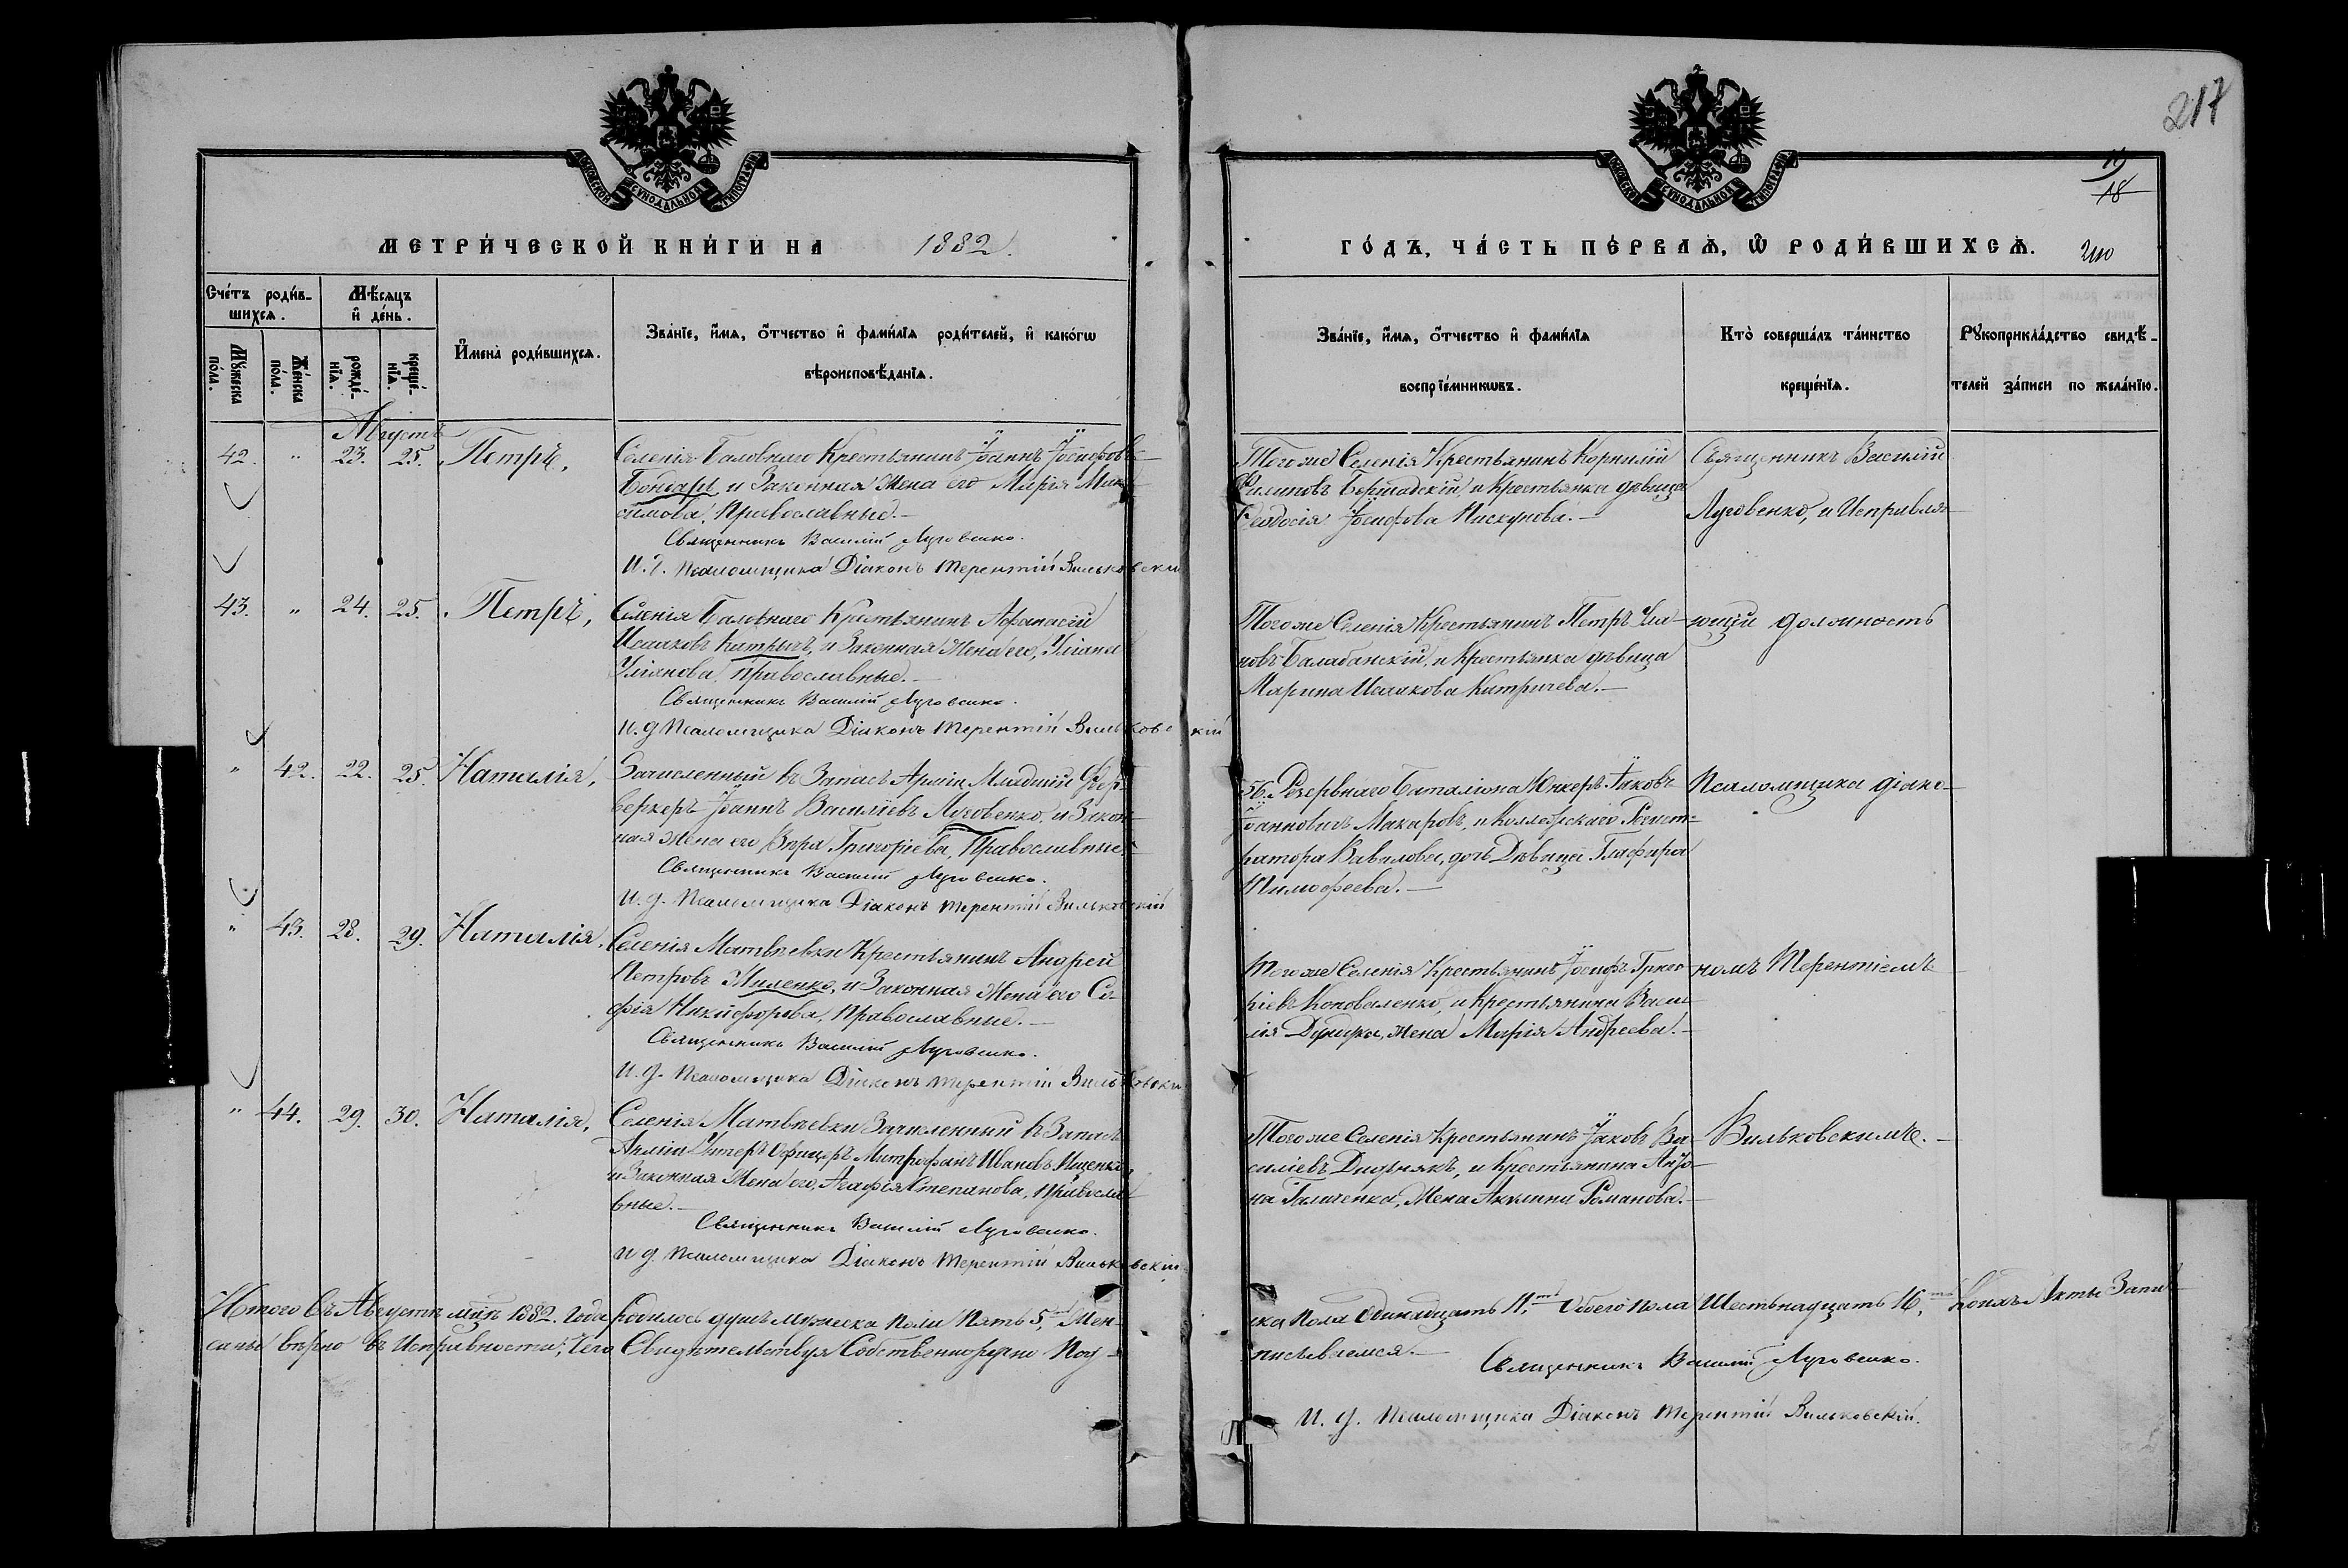 217
19
18
210
МОСКОВСКОЙ СѴНОДАЛЬНОЙ ТИПОГРАФІИ
МОСКОВСКОЙ СѴНОДАЛЬНОЙ ТИПОГРАФІИ
МЕТРИ́ЧЕСКОЙ КНИ́ГИ НА 1882.
ГО́ДЪ, ЧА́СТЬ ПЕ́РВАѦ, Ѡ҆ РОДИ́ВШИХСѦ.
Сче́тъ роди́в-
шихсѧ.
Мѣ́сѧцъ
и҆ де́нь.
Мꙋ́жеска
по́ла.
Же́нска
по́ла.
рожде́-
нїѧ.
креще́-
нїѧ.
И҆мена̀ роди́вшихсѧ.
Зва́нїе, и҆́мѧ, ѻ҆́тчество и҆ фами́лїѧ роди́телей, и҆ како́гѡ
вѣроисповѣ́данїѧ.
Зва́нїе, и҆́мѧ, ѻ҆́тчество и҆ фами́лїѧ
воспрїе́мникѡвъ.
Кто̀ соверша́лъ та́инство
креще́нїѧ.
Рꙋкоприкла́дство свидѣ́-
телей за́писи по жела́нїю.
Августъ
42. " 23. 25. Петръ,
Селенія Баловнаго Крестьянинъ Іоаннъ Іосифовъ
Бондарь и Законная Жена его Марія Мак-
симова, Православные.-
Священникъ Василій Луговенко.
И. д. Псаломщика Діаконъ Терентій Вильковскій
Тогоже Селенія Крестьянинъ Корнилій
Филиповъ Бершадскій, и Крестьянка дѣвица
Феодосія Іосифова Пискунова.-
Священникъ Василій
Луговенко, и Исправля-
43. " 24. 25. Петръ,
Селенія Баловнаго Крестьянинъ Афанасій
Исааковъ Китричъ, и Законная Жена его, Уліана
Уліянова, Православные.-
Священникъ Василій Луговенко.
И. д Псаломщика Діаконъ Терентій Вильковскій
Тогоже Селенія Крестьянинъ Петръ
новъ Балабанскій, и Крестьянка дѣвица
Марина Исаакова Китричева.-
ющій должность
" 42. 22. 25. Наталія,
Зачисленный въ Запасъ Арміи Младшій Фейер-
веркеръ Іоаннъ Василіевъ Луговенко, и Закон-
ная Жена его Вѣра Григоріева, Православные.
Священникъ Василій Луговенко.
И. д. Псаломщика Діаконъ Терентій Вильковскій
56. Резервнаго Баталіона Юнкеръ Іаковъ
Іоанновичъ Макаровъ, и Коллежскаго Регист-
ратора Вавилова, дочь Дѣвица Глафира
Тимофеева.-
Псаломщика діако-
" 43. 28. 29. Наталія,
Селенія Матвѣевки Крестьянинъ Андрей
Петровъ Миленко, и Законная Жена его Со-
фія Никифорова, Православные.-
Священникъ Василій Луговенко.
И. д. Псаломщика Діаконъ Терентій Вильковскій
Тогоже Селенія Крестьянинъ Іосифъ Григо-
ріевъ Коноваленко, и Крестьянина Васи-
лія жена Марія Андреева.-
номъ Терентіемъ
" 44. 29. 30. Наталія,
Селенія Матвѣевки Зачисленный въ Запасъ
Арміи Унтеръ Офицеръ Митрофанъ Ивановъ Ищенко,
и Законная Жена его, Агафія Степанова, Правосла-
вные.-
Священникъ Василій Луговенко.
И д. Псаломщика Діаконъ Терентій Вильковскій
Тогоже Селенія Крестьянинъ Іаковъ Ва-
силіевъ и Крестьянина Анто-
на Галиченка, Жена Акулина Романова.-
Вильковскимъ.-
Итого въ Августѣ мцѣ 1882. Года Родилось душъ мужеска пола Пять 5, Жен-
ска пола Одинадцать 11, Обоего пола Шестьнадцать 16, коихъ Акты Запи-
саны вѣрно въ Исправности, Чего Свидѣтельствуя Собственноручно Под-
писываемся.-
Священникъ Василій Луговенко.
И. д. Псаломщика Діаконъ Терентій Вильковскій.